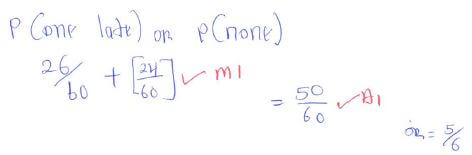 P(one late) or P(none)
26/60 + [24/60] ✓ M1
= 50/60 ✓ A1
or = 5/6